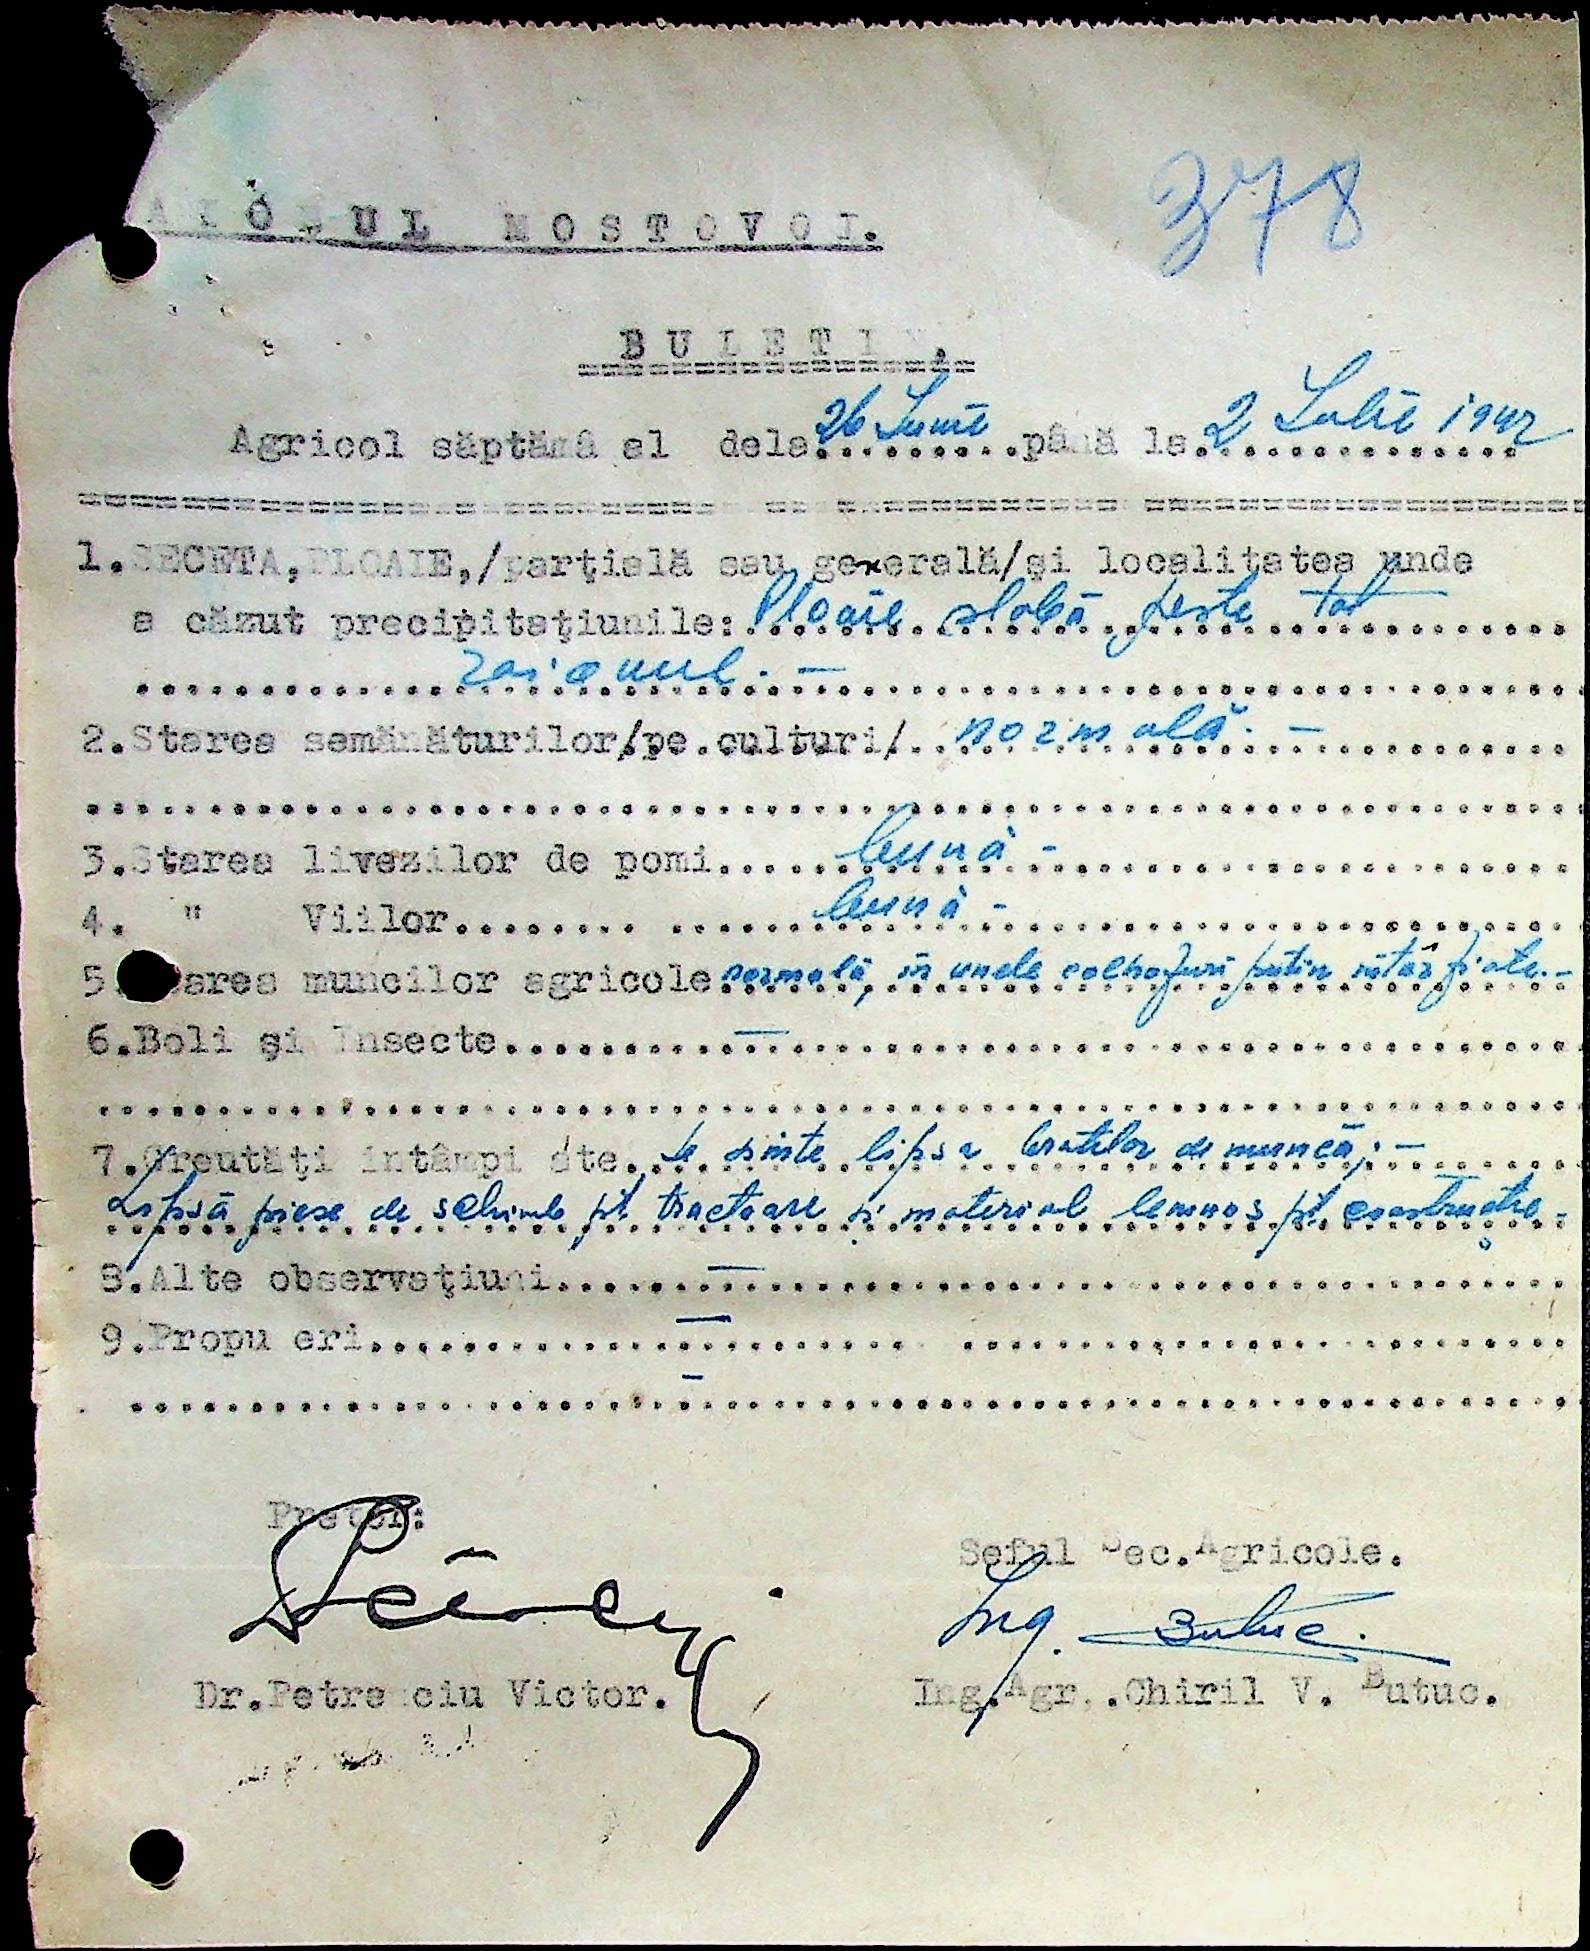 378
RAIONUL MOSTOVOI.
BULETIN.
Agricol săptămâ al dela 26 Iunie până la 2 Iulie 1942
1.SECETA,PLOAIE,/parţială sau generală/şi localitatea unde
a căzut precipitaţiunile: Ploaie slabă peste tot
raionul. —
2.Starea semănăturilor/pe culturi/ normală. —
3.Starea livezilor de pomi bună -
4. " Viilor bună -
5. Starea muncilor agricole normală, în unele colhozuri puțin întârziate. -
6.Boli şi insecte —
7.Greutăţi întâmpi ate. Se simte lipsa brațelor de muncă; —
Lipsă piese de schimb pt. tractoare și material lemnos pt. construcție -
8.Alte observaţiuni —
9.Propu eri —
-
Pretor:
Seful Sec.Agricole.
Ing. Butuc.
Dr.Petre ciu Victor.
Ing.Agr. Chiril V. Butuc.